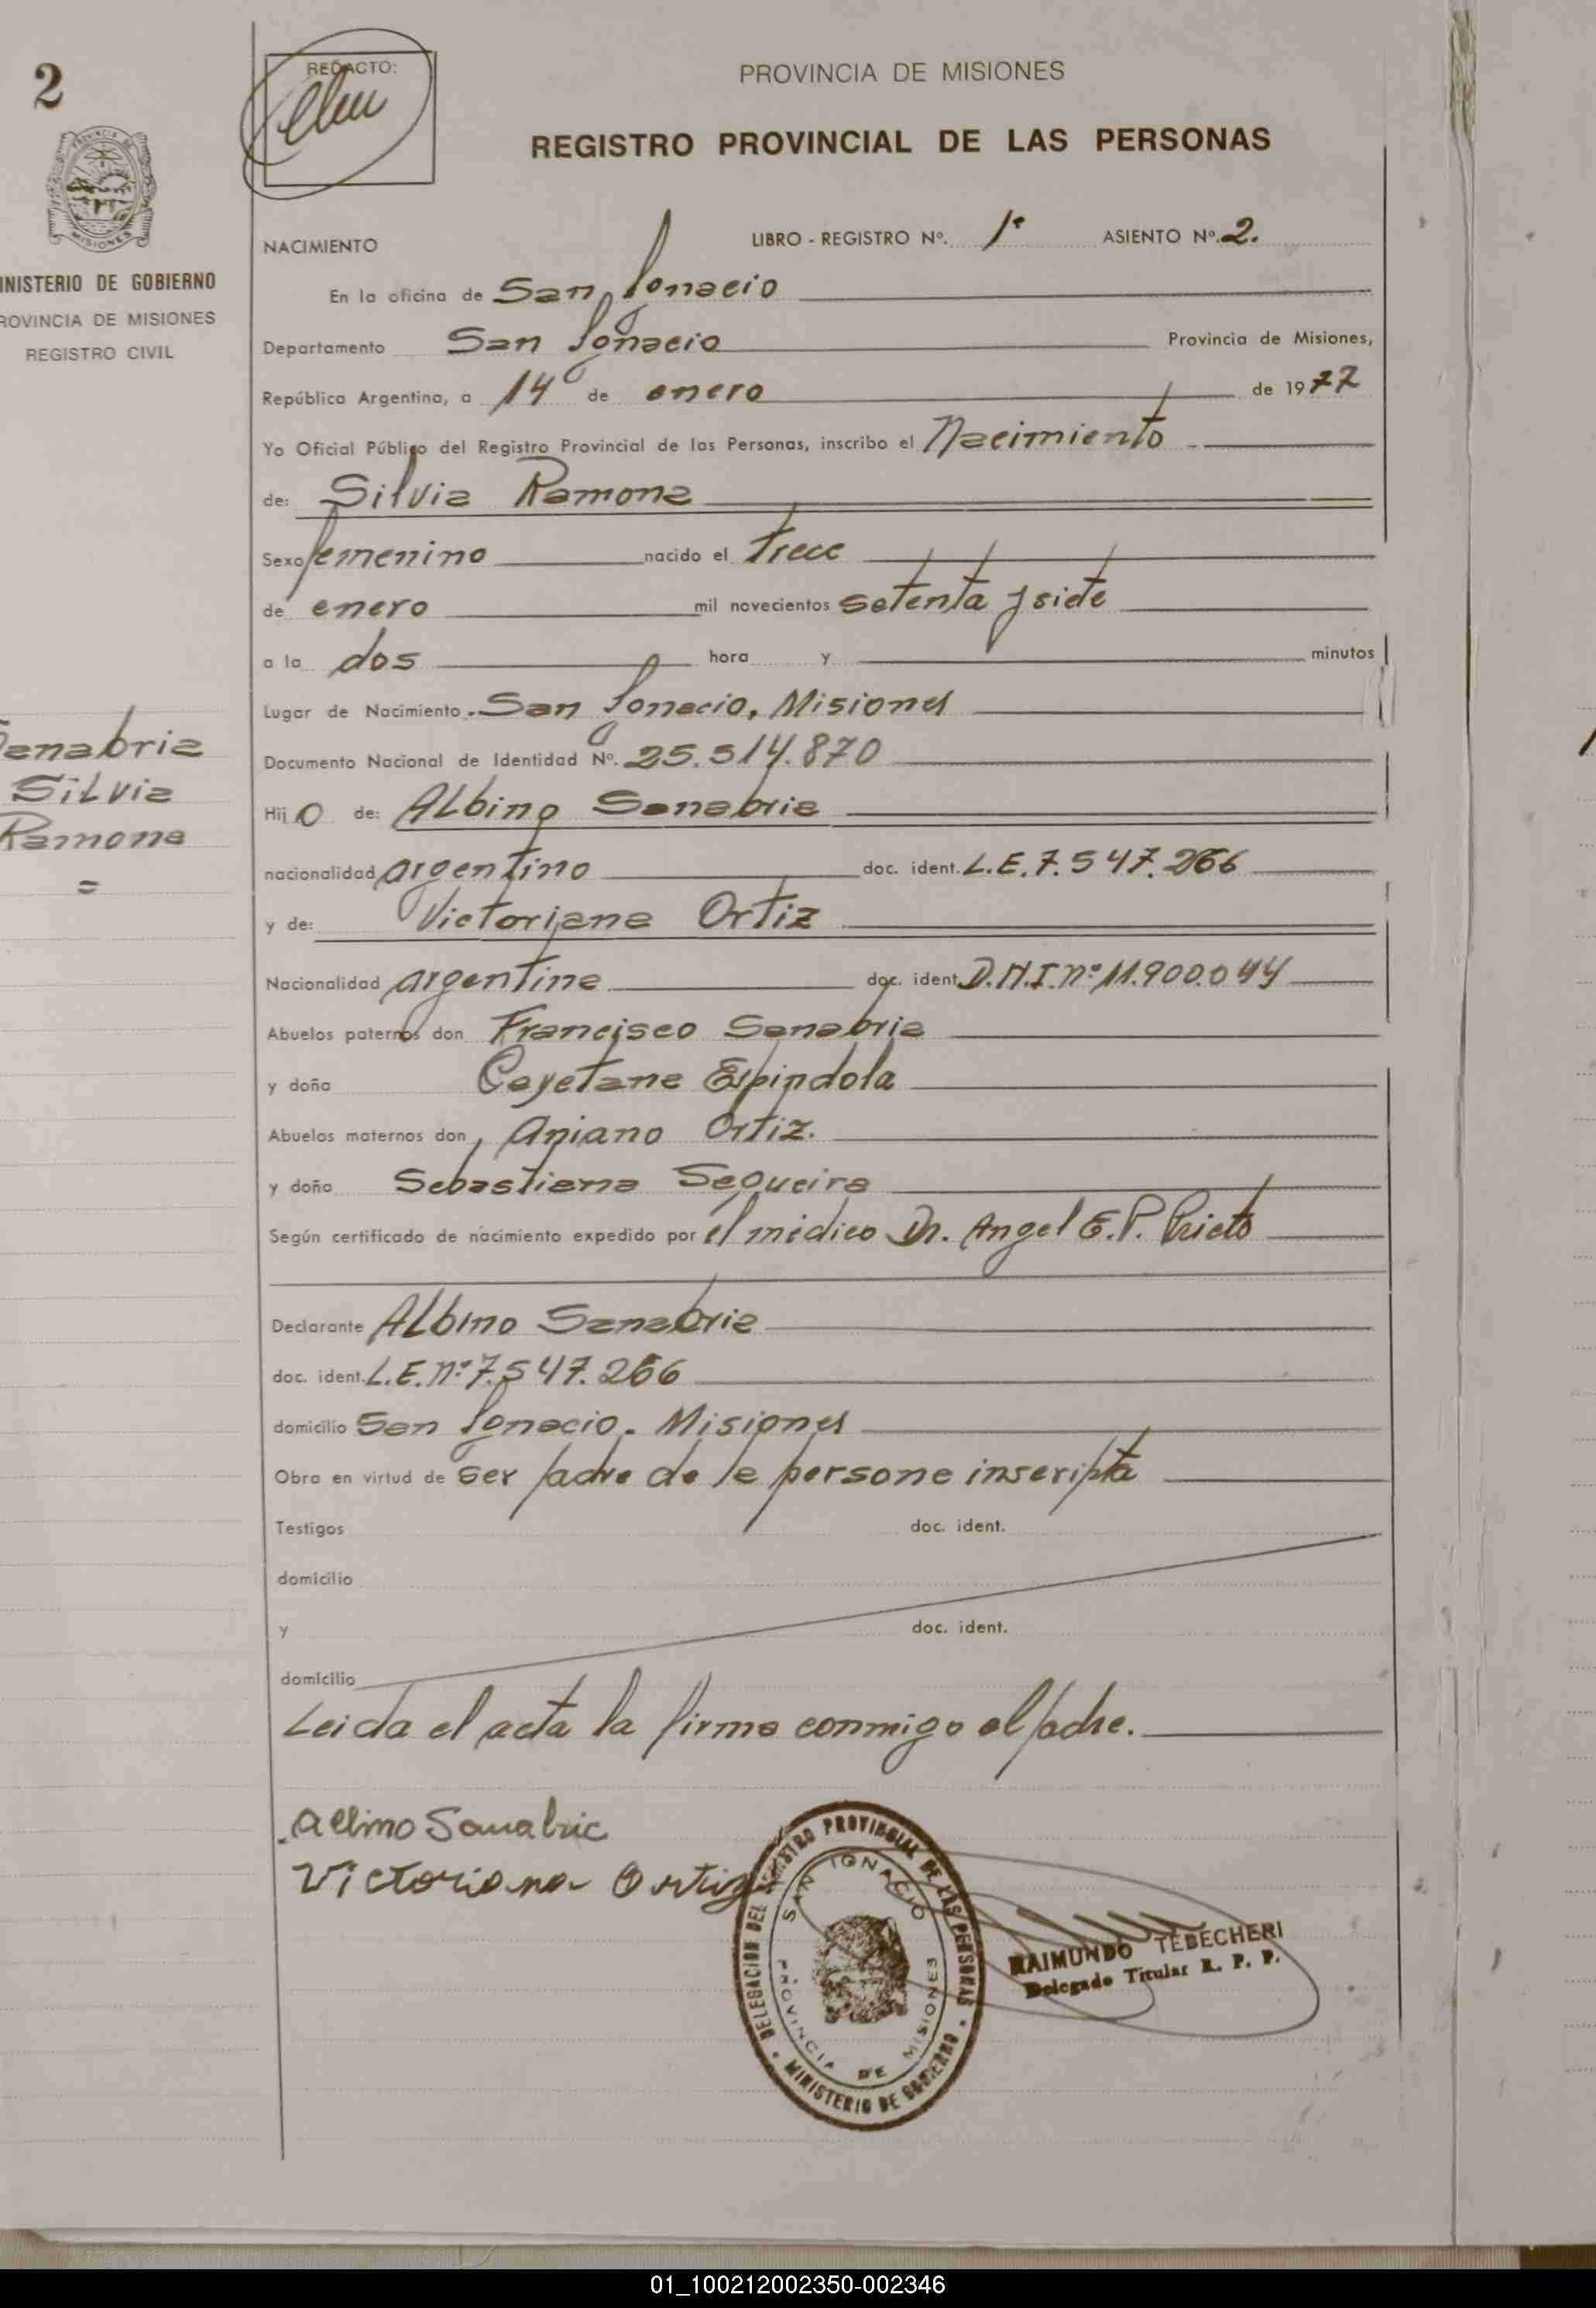 2
REDACTO:
PROVINCIA DE MISIONES
REGISTRO PROVINCIAL DE LAS PERSONAS
PROVINCIA DE
MISIONES
INISTERIO DE GOBIERNO
ROVINCIA DE MISIONES
REGISTRO CIVIL
NACIMIENTO LIBRO - REGISTRO Nº. 1º ASIENTO Nº. 2.
En la oficina de San Ignacio
Departamento San Ignacio Provincia de Misiones,
República Argentina, a 14 de enero de 1977
Yo Oficial Público del Registro Provincial de las Personas, inscribo el Nacimiento
de: Silvia Ramona
Sexo femenino nacido el trece
de enero mil novecientos setenta y siete
a la dos hora y minutos
Lugar de Nacimiento. San Ignacio, Misiones
Documento Nacional de Identidad Nº. 25.514.870
Sanabria
Silvia
Ramona
=
Hij o de: Albino Sanabria
nacionalidad argentino doc. ident. L.E. 7.547.266
y de: Victoriana Ortiz
Nacionalidad argentina doc. ident. D.N.I. nº 11.900.044
Abuelos paternos don Francisco Sanabria
y doña Cayetana Espindola
Abuelos maternos don, Aniano Ortiz.
y doña Sebastiana Sequeira
Según certificado de nacimiento expedido por el médico Dr. Angel E.P. Prieto
Declarante Albino Sanabria
doc. ident. L.E. nº 7.547.266
domicilio San Ignacio. Misiones
Obra en virtud de ser padre de la persona inscripta
Testigos doc. ident.
domicilio
y doc. ident.
domicilio
Leida el acta la firma conmigo el padre.
Albino Sanabria
Victoriana Ortiz
DELEGACION DEL REGISTRO PROVINCIAL DE LAS PERSONAS
MINISTERIO DE GOBIERNO
SAN IGNACIO
PROVINCIA DE MISIONES
RAIMUNDO TEDECHERI
Delegado Titular R. P. P.
01_100212002350-002346